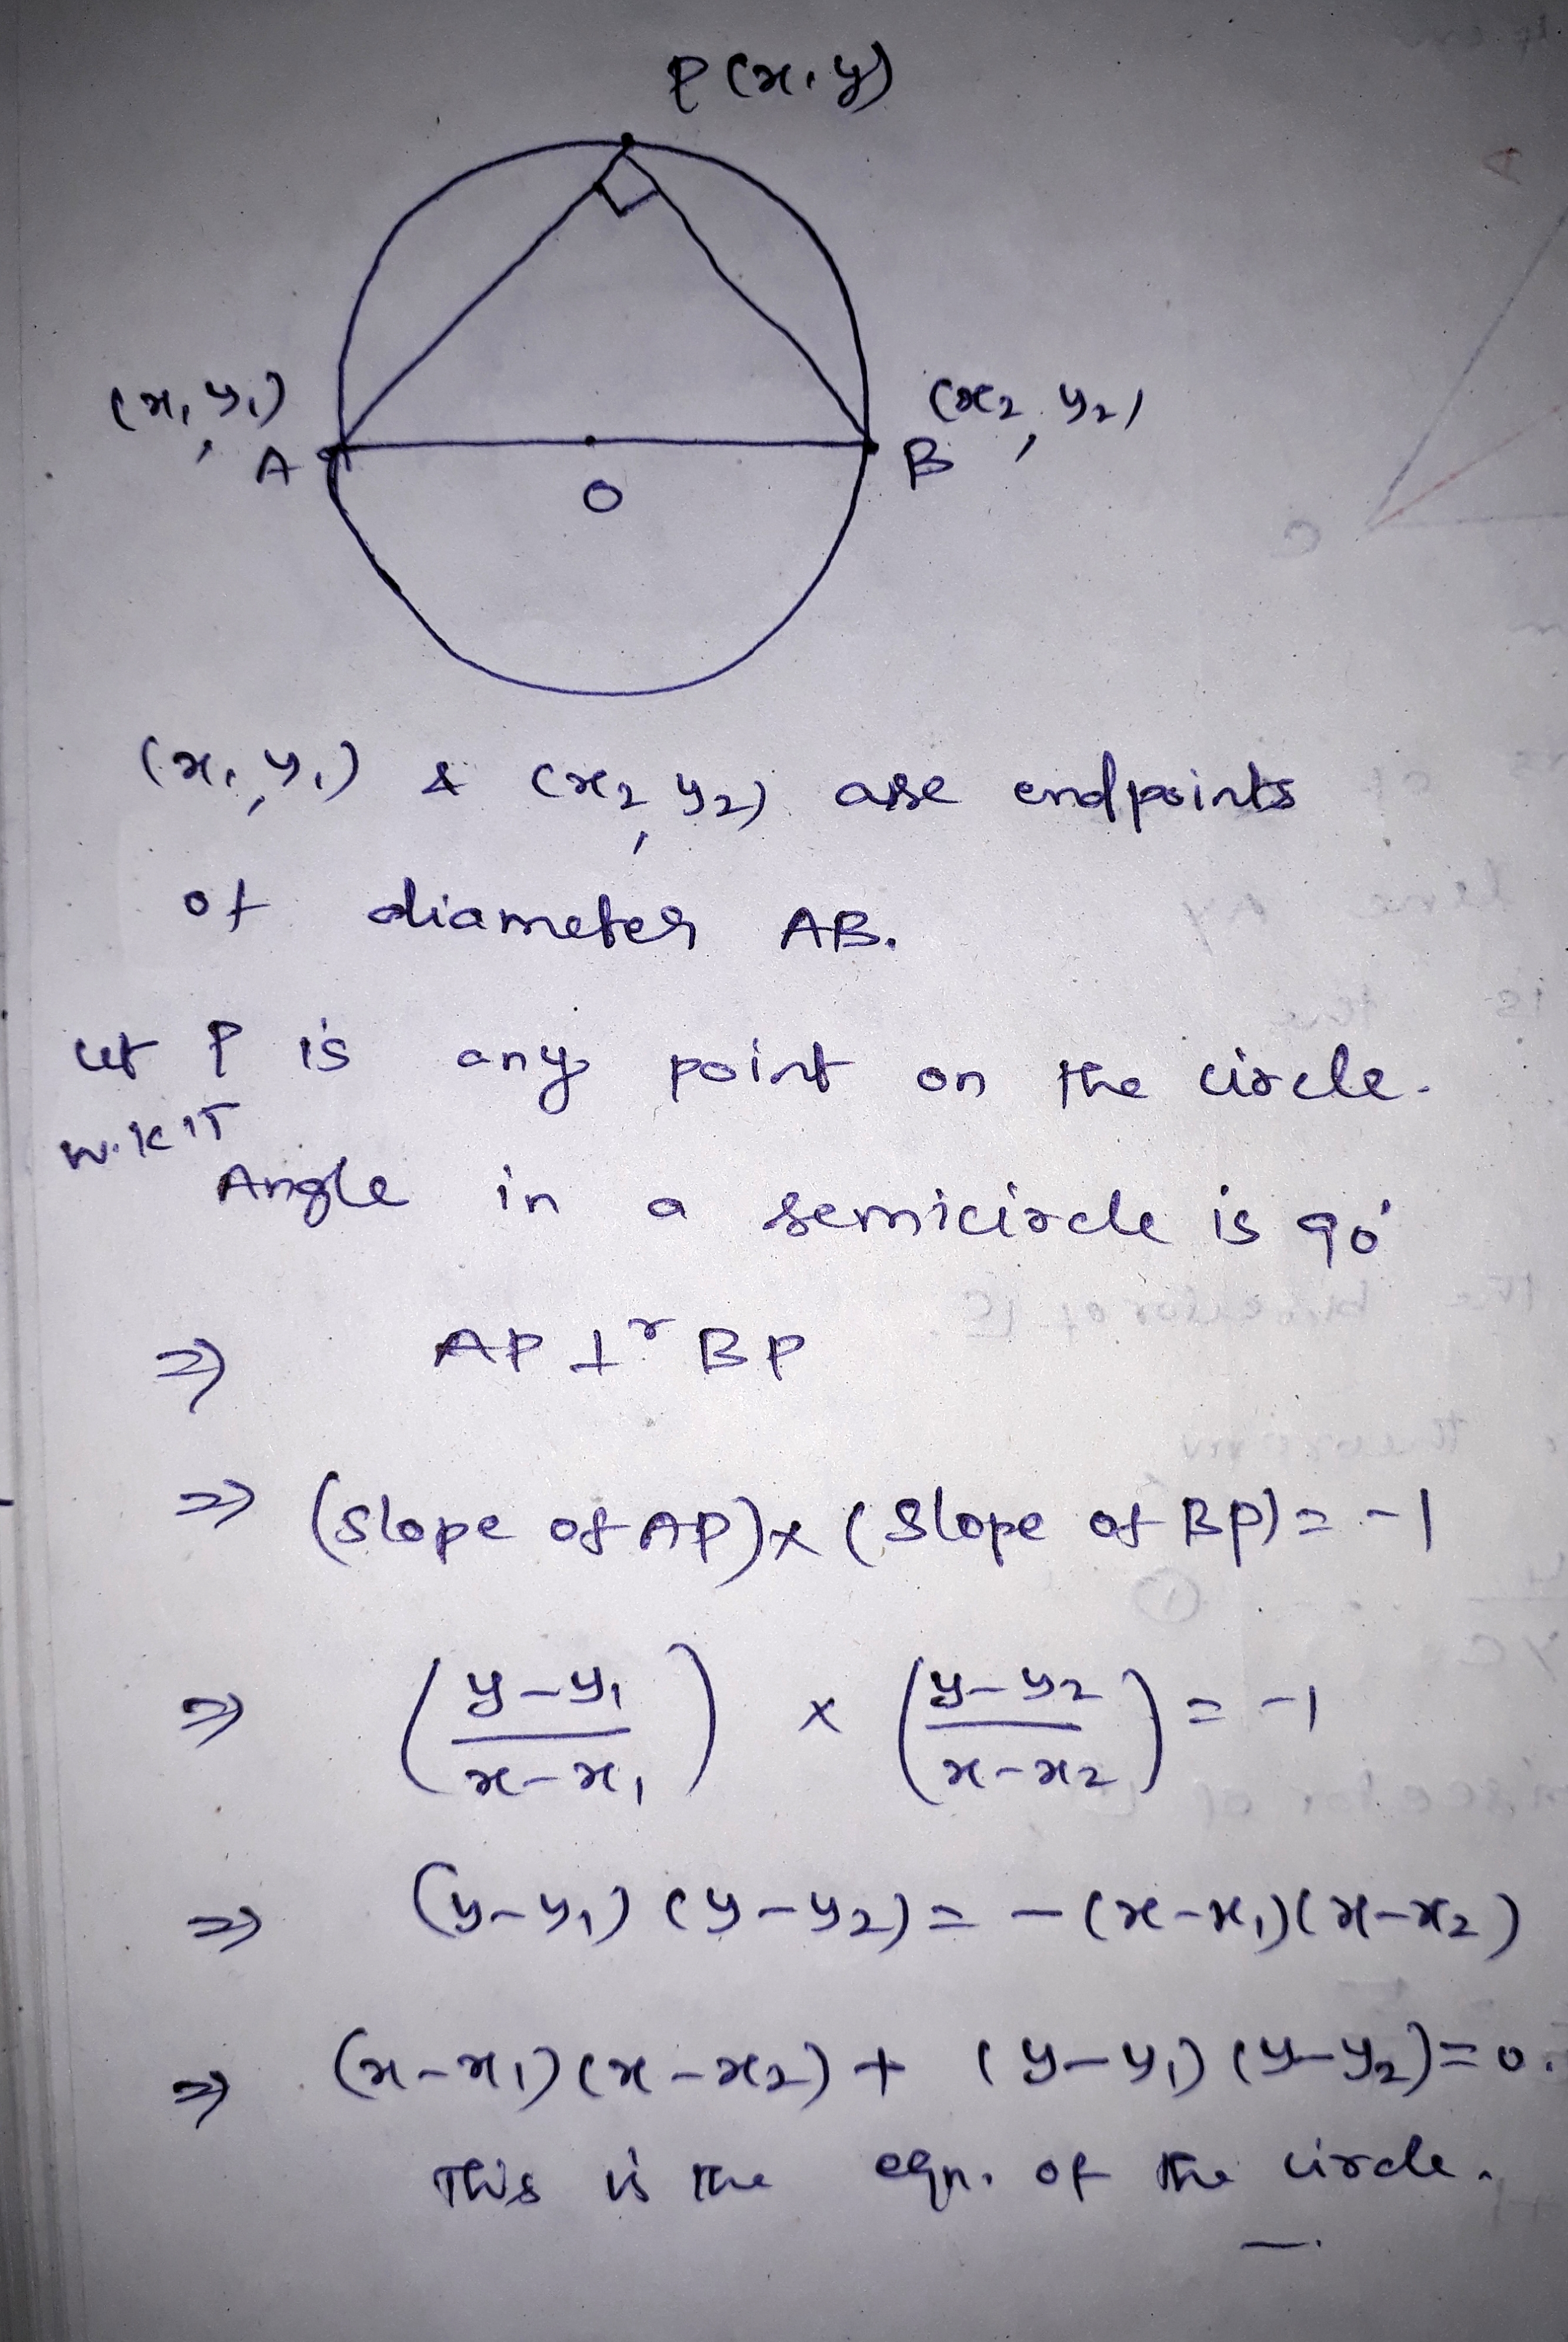 P(x,y)
(x₁,y₁)
(x₂,y₂)
A
B
O
(x₁,y₁) & (x₂,y₂) are endpoints
of diameter AB.
Let P is any point on the circle.
W.K.T
Angle in a semicircle is 90°
⇒ AP ⊥ʳ BP
⇒ (Slope of AP)×(Slope of BP)= -1
⇒ ((y-y₁)/(x-x₁)) × ((y-y₂)/(x-x₂)) = -1
⇒ (y-y₁)(y-y₂)= -(x-x₁)(x-x₂)
⇒ (x-x₁)(x-x₂)+(y-y₁)(y-y₂)=0.
This is the eqn. of the circle.